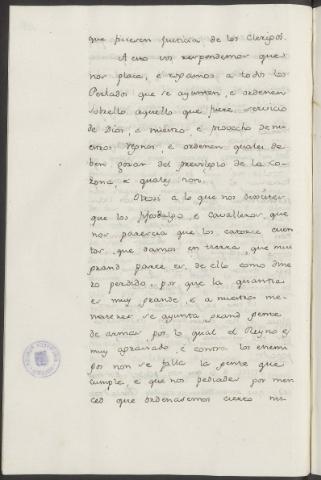 que ficieren justicia de los Clerigos.
A esto vos respondemos que
nos place, e rogamos a todos los
Perlados que se ayunten, e ordenen
sobrello aquello que fuere servicio
de Dios, e nuestro, e provecho de nu
estros Regnos, e ordenen quales de
ben gozar del previlegio de la Co-
rona, e quales non.
Otrosi a lo que nos
que los Fijosdalgo, e Cavalleros, que
nos parescia que los catorce cuen
tos, que damos en tierra, que muy
grand parte es de ello como dine
ro perdido, por que la quantia
es muy grande, e a nuestros me-
nesteres se ayunta grand gente
de armas, por lo qual el Reyno es
muy agraviado, e contra los enemi
gos non se falla la gente que
cumple, e que nos pediades por mer
ced que ordenasemos cierto nu-